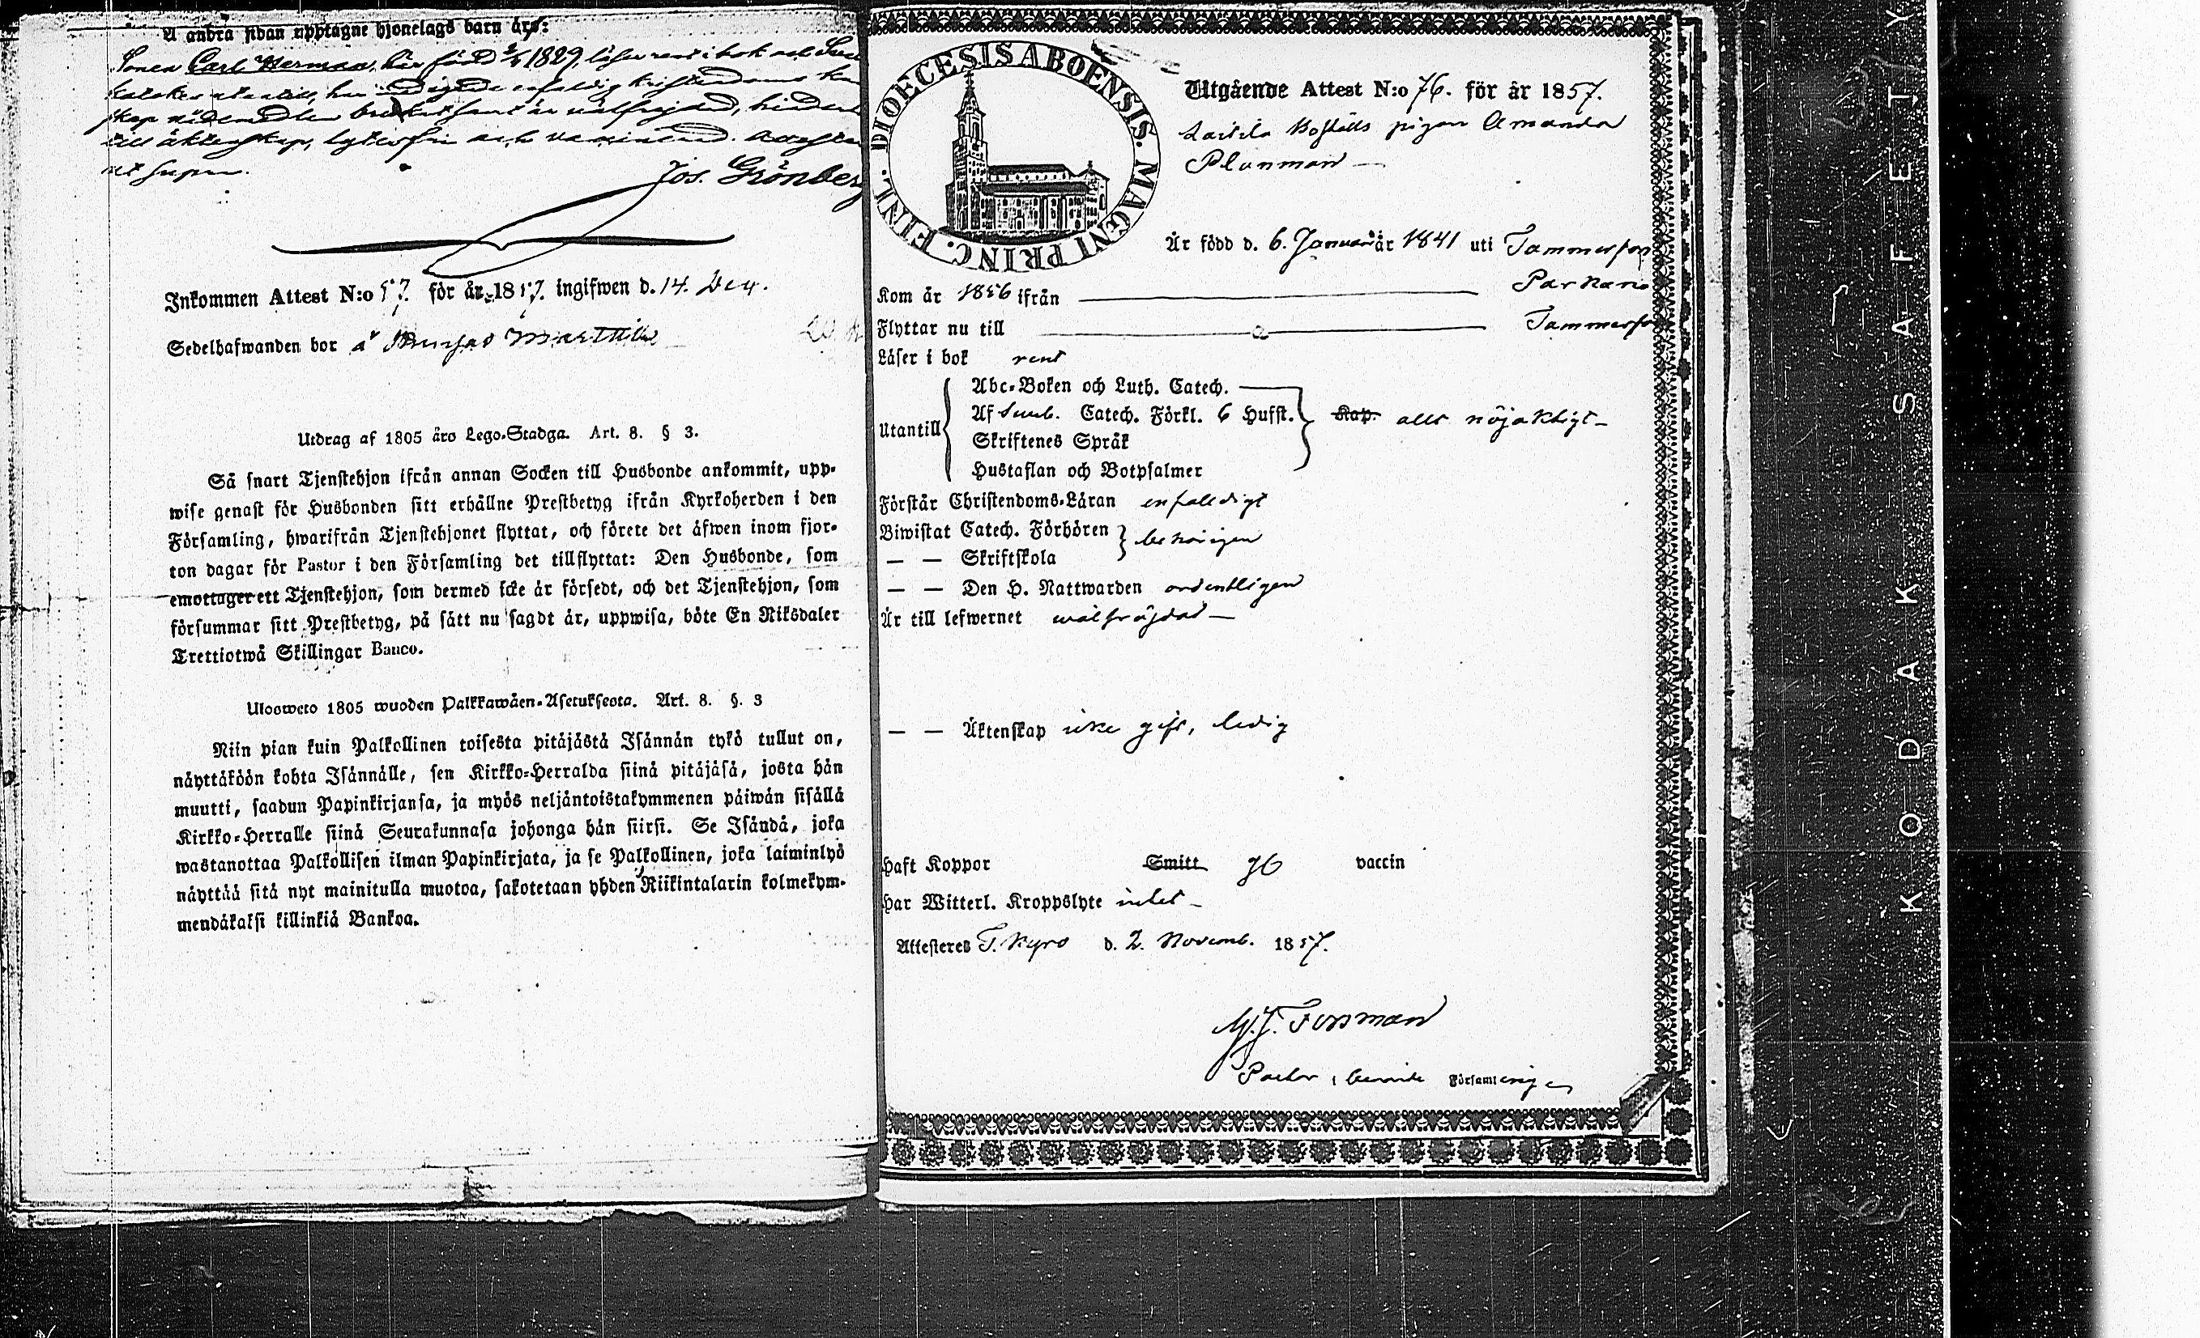 Å andra sidan upptagne hjonelags barn äro:
Sonen Carl Herman, här född 1829, läser rent i bok och
till äktenskap, lytesfri och vaccinerad.
ut supra.
Jos. Grönberg
Inkommen Attest N:o 57. för år 1857. ingifwen d. 14. Dec.
Sedelhafwanden bor å Marttila
Utdrag af 1805 års Lego-Stadga. Art. 8. § 3.
Så snart Tjenstehjon ifrån annan Socken till Husbonde ankommit, upp-
wise genast för Husbonden sitt erhållne Prestbetyg ifrån Kyrkoherden i den
Församling, hwarifrån Tjenstehjonet flyttat, och förete det äfwen inom fjor-
ton dagar för Pastor i den Församling det tillflyttat: Den Husbonde, som
emottager ett Tjenstehjon, som dermed icke är försedt, och det Tjenstehjon, som
försummar sitt Prestbetyg, på sätt nu sagdt är, uppwisa, böte En Riksdaler
Trettiotwå Skillingar Banco.
Ulosweto 1805 wuoden Palkkawäen-Asetuksesta. Art. 8. §. 3
Niin pian kuin Palkollinen toisesta pitäjästä Isännän tykö tullut on,
näyttäköön kohta Isännälle, sen Kirkko-Herralda siinä pitäjäsä, josta hän
muutti, saadun Papinkirjansa, ja myös neljäntoistakymmenen päiwän sisällä
Kirkko-Herralle siinä Seurakunnasa johonga hän siirsi. Se Isändä, joka
wastanottaa Palkollisen ilman Papinkirjata, ja se Palkollinen, joka laiminlyö
näyttää sitä nyt mainitulla muotoa, sakotetaan yhden Riikintalarin kolmekym-
mendäkaksi killinkiä Bankoa.
DIOECESIS ABOËNSIS. MAGNI PRINC. FINL.
Utgående Attest N:o 76. för år 1857.
Laitila Boställs pigan Amanda
Planman
Är född d. 6. Januari år 1841 uti Tammerfors
Kom år 1856 ifrån Parkano
Flyttar nu till Tammerfors
Läser i bok rent
Abc-Boken och Luth. Catech.
Utantill Af Sweb. Catech. Förkl. 6 Hufst. Kap. allt nöjaktigt
Skriftenes Språk
Hustaflan och Botpsalmer
Förstår Christendoms-Läran enfaldigt
Biwistat Catech. Förhören behörigen
— — Skriftskola
— — Den H. Nattwarden ordentligen
Är till lefwernet wälfräjdad
— — Äktenskap icke gift, ledig
Haft Koppor Smitt vaccin
Har Witterl. Kroppslyte intet
Attesteras T. Kyro d. 2. Novemb. 1857.
Forsman
Pastor i berörde Församlingen
KODAK SAFETY